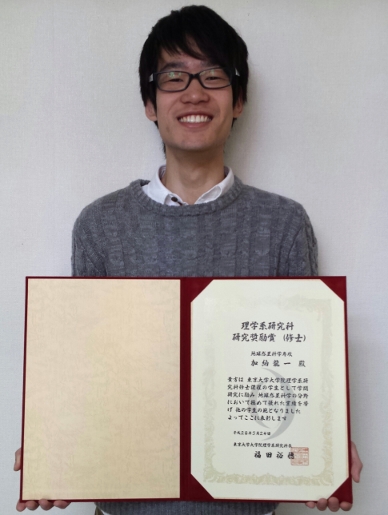 理学系研究科
研究奨励賞 (修士)
地球惑星科学専攻
加納龍一 殿
貴方は 東京大学大学院理学系研
究科修士課程の学生として学問
研究に励み 地球惑星科学の分野
において極めて優れた業績を挙
げ 他の学生の範となりました
よってここに表彰します
東京大学大学院理学系研究科長
福田裕穂